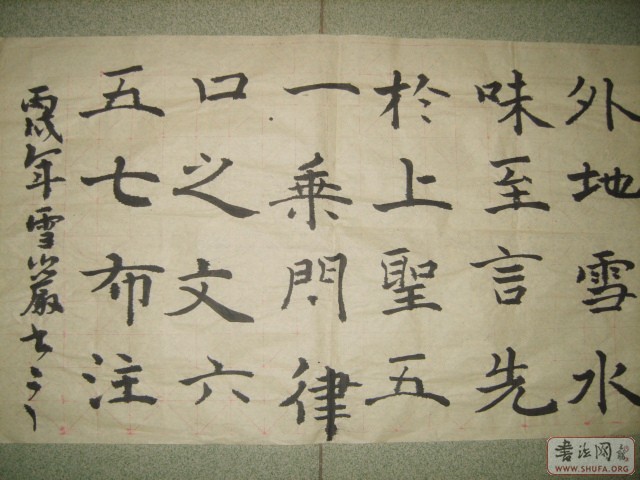 外地雪水
味至言先
於上聖五
一乗問律
口之文六
五七布注
丙戌年雪岩
書法网
WWW.SHUFA.ORG